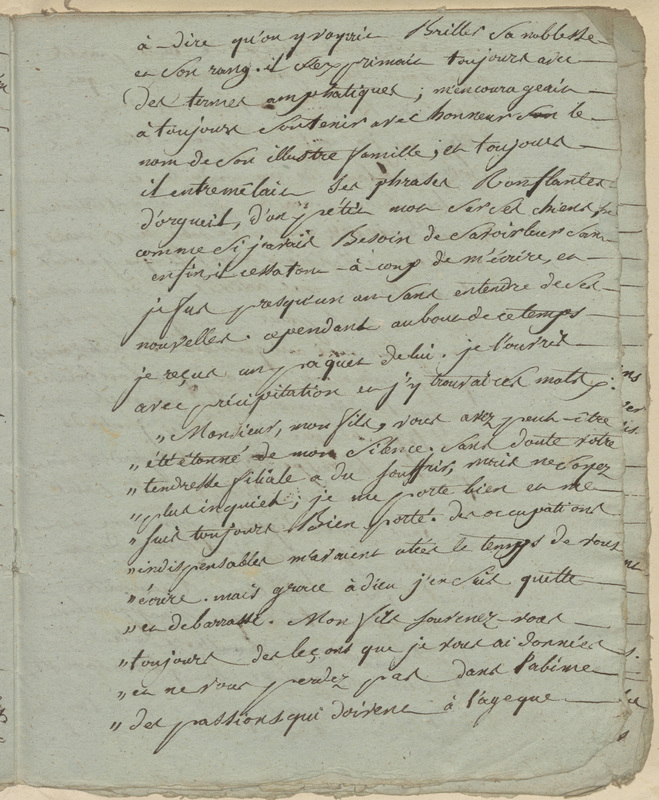 à-dire qu'on y voyoit Briller sa noblesse
et son rang. il s'exprimait toujours avec
des termes amphatiques; m'encourageait
à toujours soutenir avec honneur le
nom de son illustre famille; et toujours
il entremêlait ses phrases Ronflantes
d'orgueil, d'un p'tit mot sur ses chiens,
comme si j'avais Besoin de savoir leur
enfin, il cessa tout-à-coup de m'écrire, et
je fus presqu'un an sans entendre de ses
nouvelles. cependant au bout de ce temps
je reçus un paquet de lui. je l'ouvris
avec précipitation et j'y trouvai ces mots:
„ Monsieur, mon fils, vous avez peut-être
„ été étonné de mon silence. sans doute votre
„ tendresse filiale a du souffrir, mais ne soyez
„ plus inquiet; je me porte bien et me
„ suis toujours Bien porté. des occupations
„ indispensables m'avaient otées le temps de vous
„ écrire. mais grace à dieu j'en suis quitte
„ et debarrassé. Mon fils souvenez-vous
„ toujours des leçons que je vous ai données
„ et ne vous perdez pas dans l'abîme
„ des passions qui doivent à l'age que